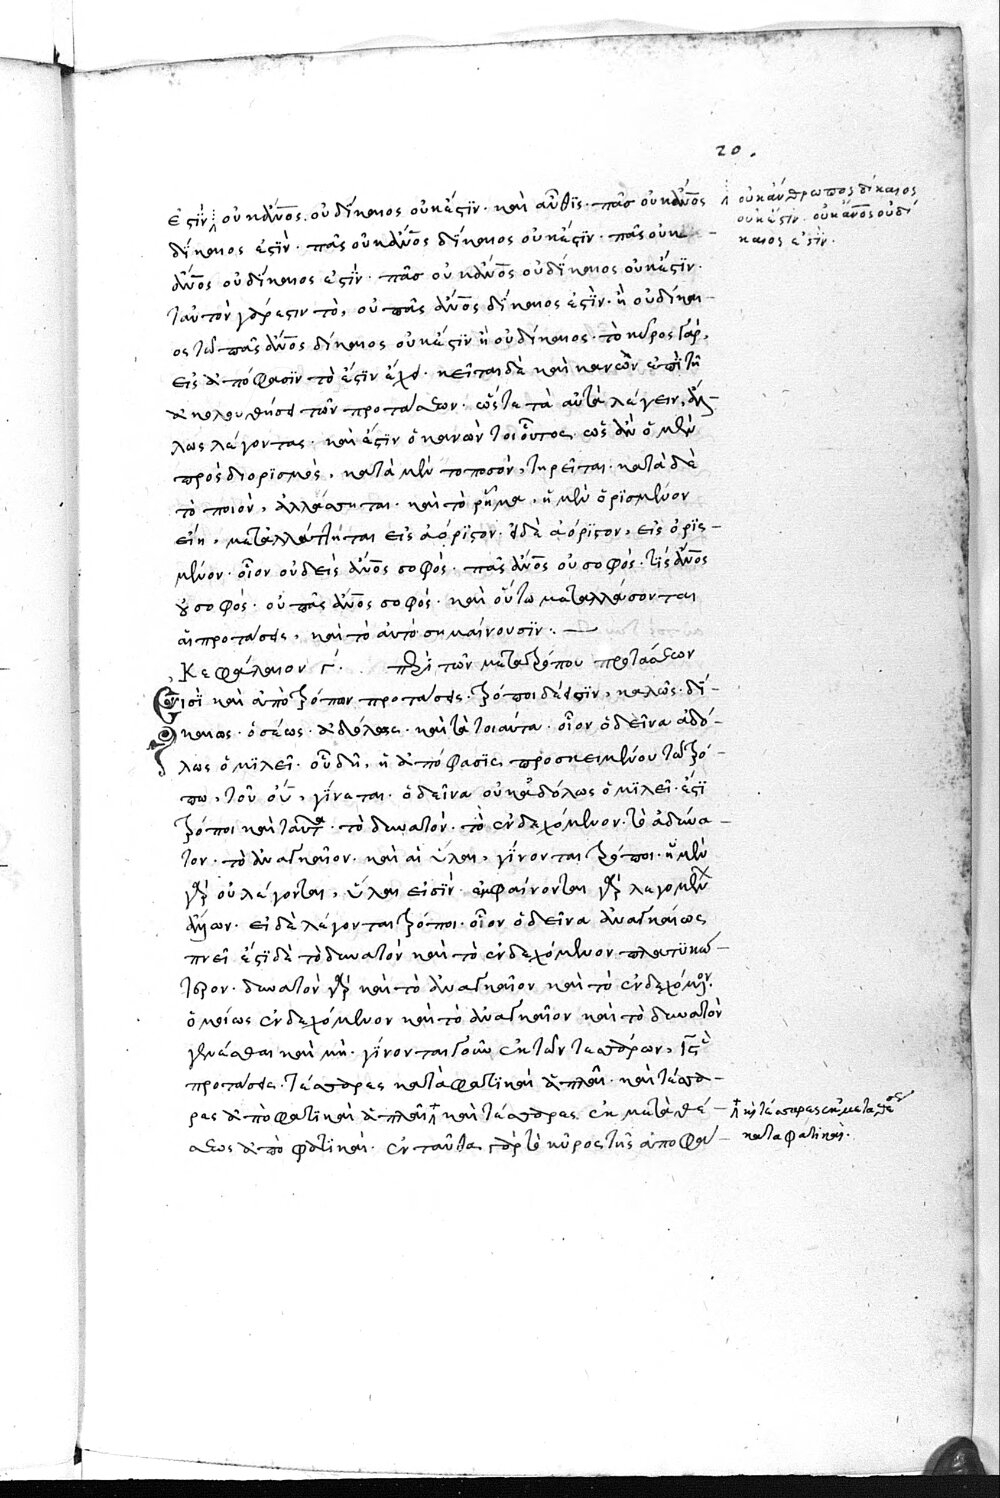 20.
ἐστὶν· οὐκ ἄν̅ο̅ς̅ οὐ δίκαιος οὐκ ἔστιν· καὶ αὖθις· πᾶς οὐκ ἄν̅ο̅ς̅
δίκαιος ἐστὶν· πᾶς οὐκ ἄν̅ο̅ς̅ δίκαιος οὐκ ἔστιν· πᾶς οὐκ
ἄν̅ο̅ς̅ οὐ δίκαιος ἐστὶν· πᾶς οὐκ ἄν̅ο̅ς̅ οὐ δίκαιος οὐκ ἔστιν·
ταυτὸν γάρ ἐστιν τὸ, οὐ πᾶς ἄν̅ο̅ς̅ δίκαιος ἐστὶν· ἢ οὐ δίκαι-
ος τῶ πᾶς ἄν̅ο̅ς̅ δίκαιος οὐκ ἔστιν ἢ οὐ δίκαιος· τὸ κῦρος γάρ,
εἰς ἀπόφασιν τὸ ἔστιν ἔχει· κεῖται δὲ καὶ κανὼν ἐπὶ τῇ
ἀκολουθήσει τῶν προτάσεων· ὥστε τὰ αὐτὰ λέγειν, ἄλ-
λως λέγοντας· καὶ ἔστιν ὁ κανὼν τοιοῦτος· ὡς ἂν ὁ μὲν
προσδιορισμὸς, κατὰ μὲν τὸ ποσὸν, τηρεῖται· κατὰ δὲ
τὸ ποιὸν, ἀλλάσσηται· καὶ τὸ ῥῆμα, εἰ μὲν ὁρισμένον
εἴη, μεταλλάττηται εἰς ἀόριστον· εἰ δὲ ἀόριστον, εἰς ὁρισ-
μένον· οἷον οὐδεὶς ἄν̅ο̅ς̅ σοφός· πᾶς ἄν̅ο̅ς̅ οὐ σοφός· τὶς ἄν̅ο̅ς̅
οὐ σοφός· οὐ πᾶς ἄν̅ο̅ς̅ σοφός· καὶ οὕτω μεταλλάσονται
αἱ προτάσεις, καὶ τὸ αὐτὸ σημαίνουσιν:
Κεφάλαιον γ΄. περὶ τῶν μετὰ τρόπου προτάσεων
Εἰσὶ καὶ ἀπὸ τρόπων προτάσεις· τρόποι δέ εἰσιν, καλῶς· δι-
καίως· ὁσίως· ἀδόλως· καὶ τὰ τοιαῦτα· οἷον ὁ δεῖνα ἀδό-
λως ὁμιλεῖ· οὐδὲ, ἡ ἀπόφασις προσκειμένου τῶ τρό-
πω, τοῦ οὐ, γίνεται· ὁ δεῖνα οὐκ ἀδόλως ὁμιλεῖ· ἔστι
τρόποι καὶ ταῦτα· τὸ δυνατόν· τὸ ἐνδεχόμενον· τὸ ἀδύνα-
τον· τὸ ἀναγκαῖον· καὶ αἱ ὗλαι, γίνονται τρόποι· εἰ μὲν
γὰρ οὐ λέγονται, ὗλαι εἰσίν· ἐμφαίνονται γὰρ λεγομένων
εἰ δὲ λέγονται τρόποι· οἷον ὁ δεῖνα ἀναγκαίως
πνεῖ ἔστι δὲ τὸ δυνατὸν καὶ τὸ ἐνδεχόμενον πλατυκώ-
τερον· δυνατὸν γὰρ καὶ τὸ ἀναγκαῖον καὶ τὸ ἐνδεχόμενον·
ὁμοίως ἐνδεχόμενον καὶ τὸ ἀναγκαῖον καὶ τὸ δυνατὸν
γενέσθαι καὶ μὴ· γίνονται γοῦν ἐκ τῶν τεσσάρων,
προτάσεις· τέσσαρες καταφατικαὶ ἁπλαῖ· καὶ τέσσα-
ρες ἀποφατικαὶ ἁπλαῖ καὶ τέσσαρες ἐκ μεταθέ-
σεως ἀποφατικαὶ· ἐνταῦθα γὰρ τὸ κῦρος τῆς ἀποφά-
οὐκ ἄνθρωπος δίκαιος
οὐκ ἔστιν· οὐκ ἄν̅ο̅ς̅ οὐ δί
καιος ἐστὶν·
καὶ τέσσαρες ἐκ μεταθέσεως
καταφατικαὶ·